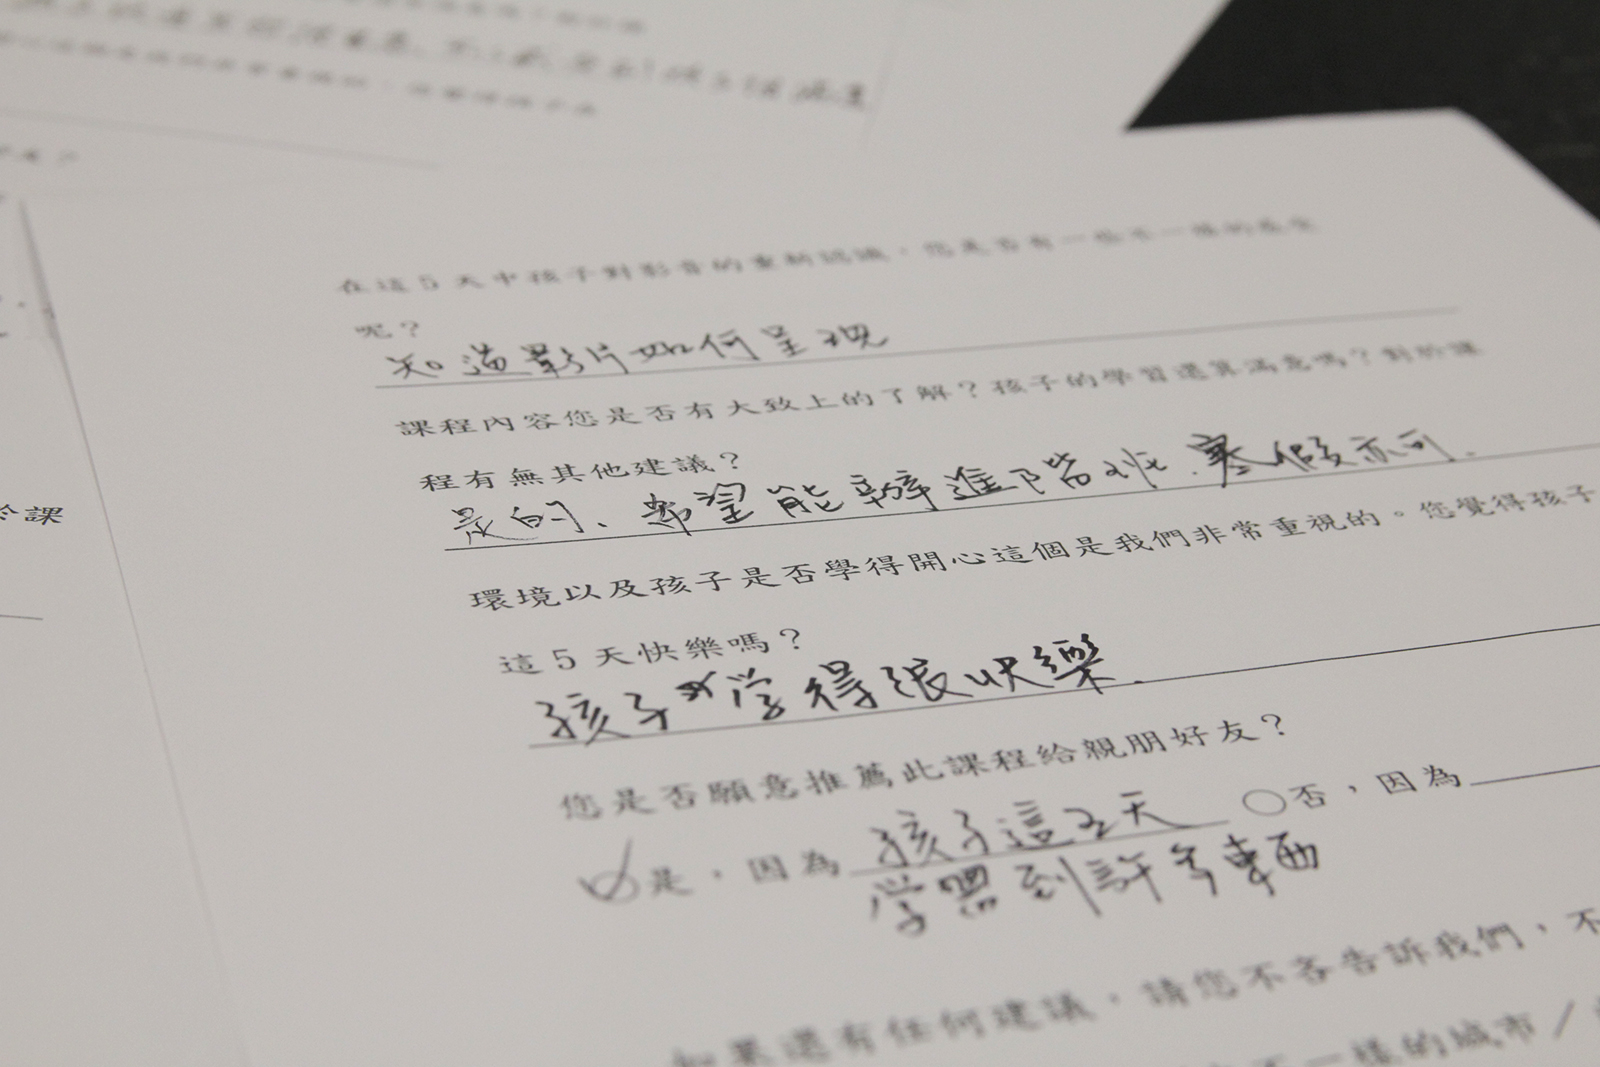 在這5天中孩子對影音的重新認識，您是否有一些不一樣的感受
呢？
知道影片如何呈現
課程內容您是否有大致上的了解？孩子的學習還算滿意嗎？對於課
程有無其他建議？
是的、希望能辦進階班.寒假亦可.
環境以及孩子是否學得開心這個是我們非常重視的。您覺得孩子
這5天快樂嗎？
孩子学得很快樂.
您是否願意推薦此課程給親朋好友？
是，因為孩子這五天 ○否，因為
学習到許多東西
如果還有任何建議，請您不吝告訴我們，不
不一樣的城市／
於課